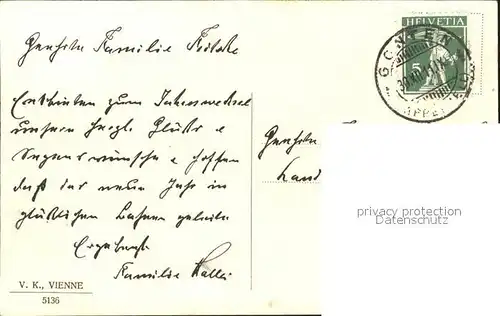 Geehrte Familie
Entbieten zum Jahreswechsel
unsere herzl. Glücks &
Segenswünsche & hoffen
daß das neue Jahr in
glücklichen Bahnen geleite
Ergebenst
Familie
V. K., VIENNE
5136
HELVETIA
5
GONTEN
Geehrte
Land
privacy protection
Datenschutz